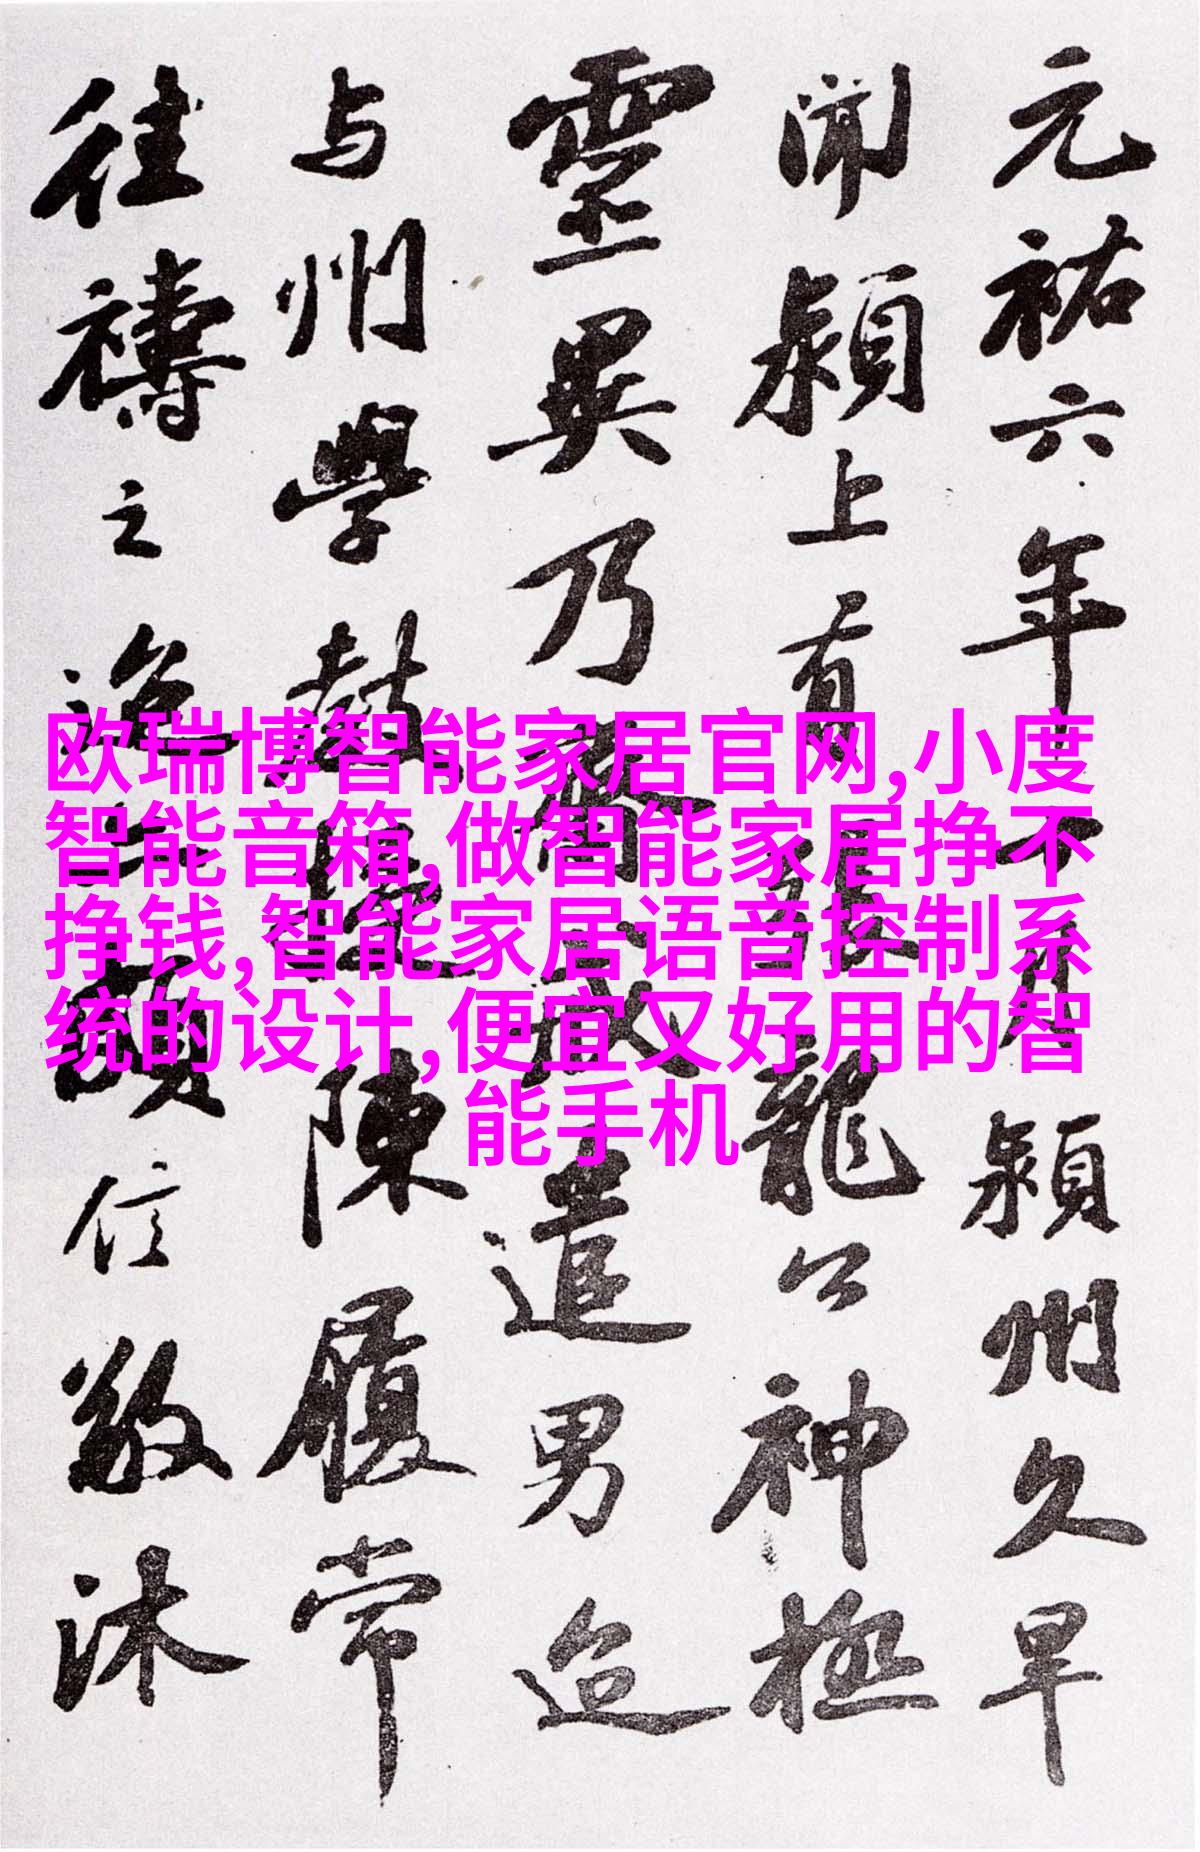 元祐六年十月潁州久旱
聞潁上有張龍公神極
靈異乃齋戒遣男迨
与州學教授陳履常
往禱之迨亦頗信敬沐
欧瑞博智能家居官网,小度
智能音箱,做智能家居挣不
挣钱,智能家居语音控制系
统的设计,便宜又好用的智
能手机